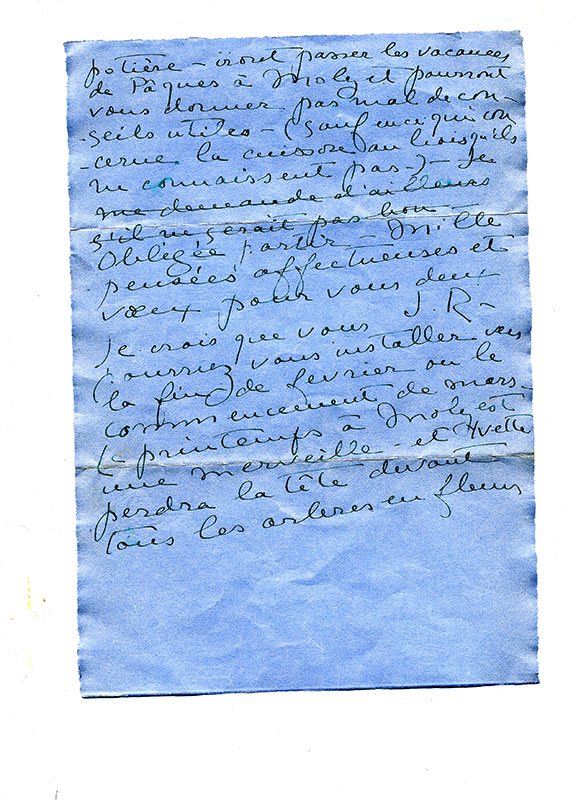 potière - iront passer les vacances
de Pâques à Moly et pourront
vous donner pas mal de con-
-seils utiles - (sauf en ce qui con
-cerne la cuisson au bois qu'ils
ne connaissent pas) - Je
me demande d'ailleurs
s'il ne serait pas bon -
Obligée partir - Mille
pensées affectueuses et
vœux pour vous deux
J. R -
Je crois que vous
pourriez vous installer vers
(la fin) de février ou le
commencement de mars -
Le printemps à Moly est
une merveille - et Yvette
perdra la tête devant
tous les arbres en fleurs